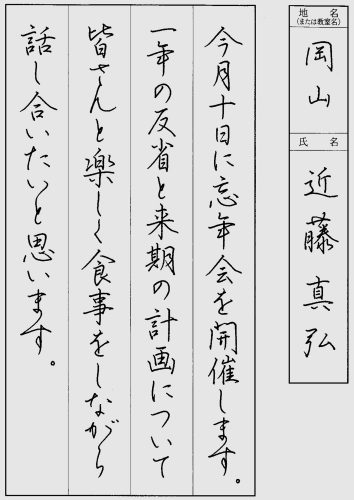 地名
(または教室名)
岡山
氏名
近藤真弘
今月十日に忘年会を開催します。
一年の反省と来期の計画について
皆さんと楽しく食事をしながら
話し合いたいと思います。